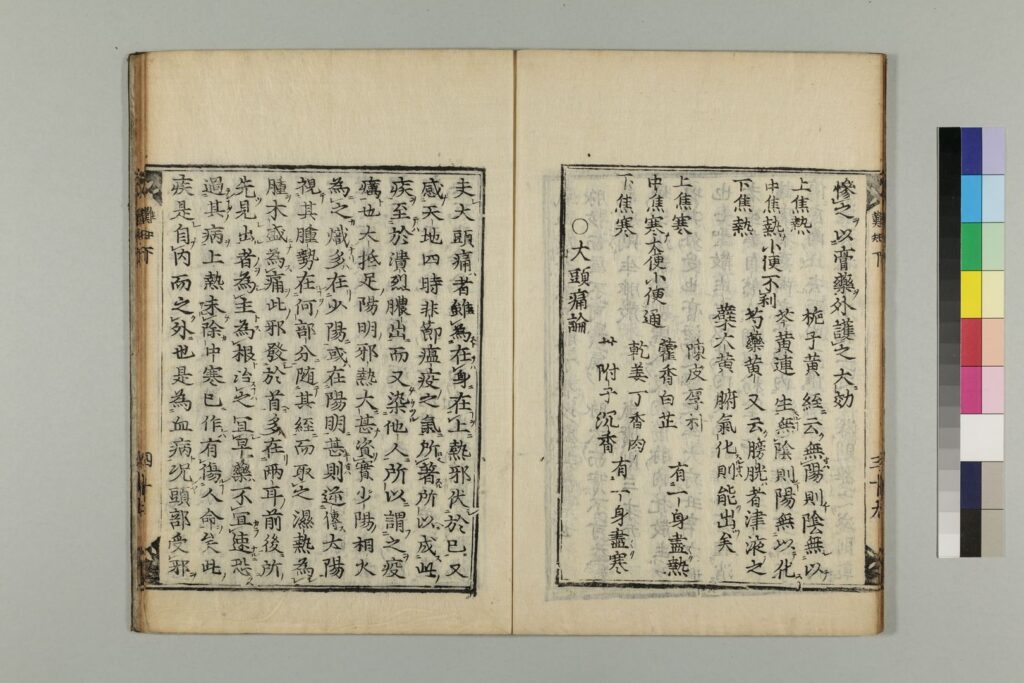 難知下
三十九
慘之以膏藥外護之大効
上焦熱 梔子黄 經云無陽則陰無以
中焦熱小便不利 芩黄連 生無陰則陽無以化
下焦熱 芍藥黄 又云膀胱者津液之
蘗大黄 腑氣化則能出矣
上焦寒 陳皮厚朴
藿香白芷 有一身盡熱
中焦寒大便小便通 乾姜丁香肉
下焦寒 附子沉香 有一身盡寒
○大頭痛論
夫大頭痛者雖為在身在上熱邪伏於已又
感天地四時非節瘟疫之氣所著所以成此
疾至於潰烈膿出而又染他人所以謂之疫
癘也大抵足陽明邪熱大甚資實少陽相火
為之熾多在少陽或在陽明甚則逆傳大陽
視其腫勢在何部分随其經而取之濕熱為
腫木盛為痛此邪發於首多在兩耳前後所
先見出者為主為根治之宜早藥不宜速恐
過其病上熱未除中寒已作有傷人命矣此
疾是自内而之外也是為血病况頭部受邪
難知下
四十